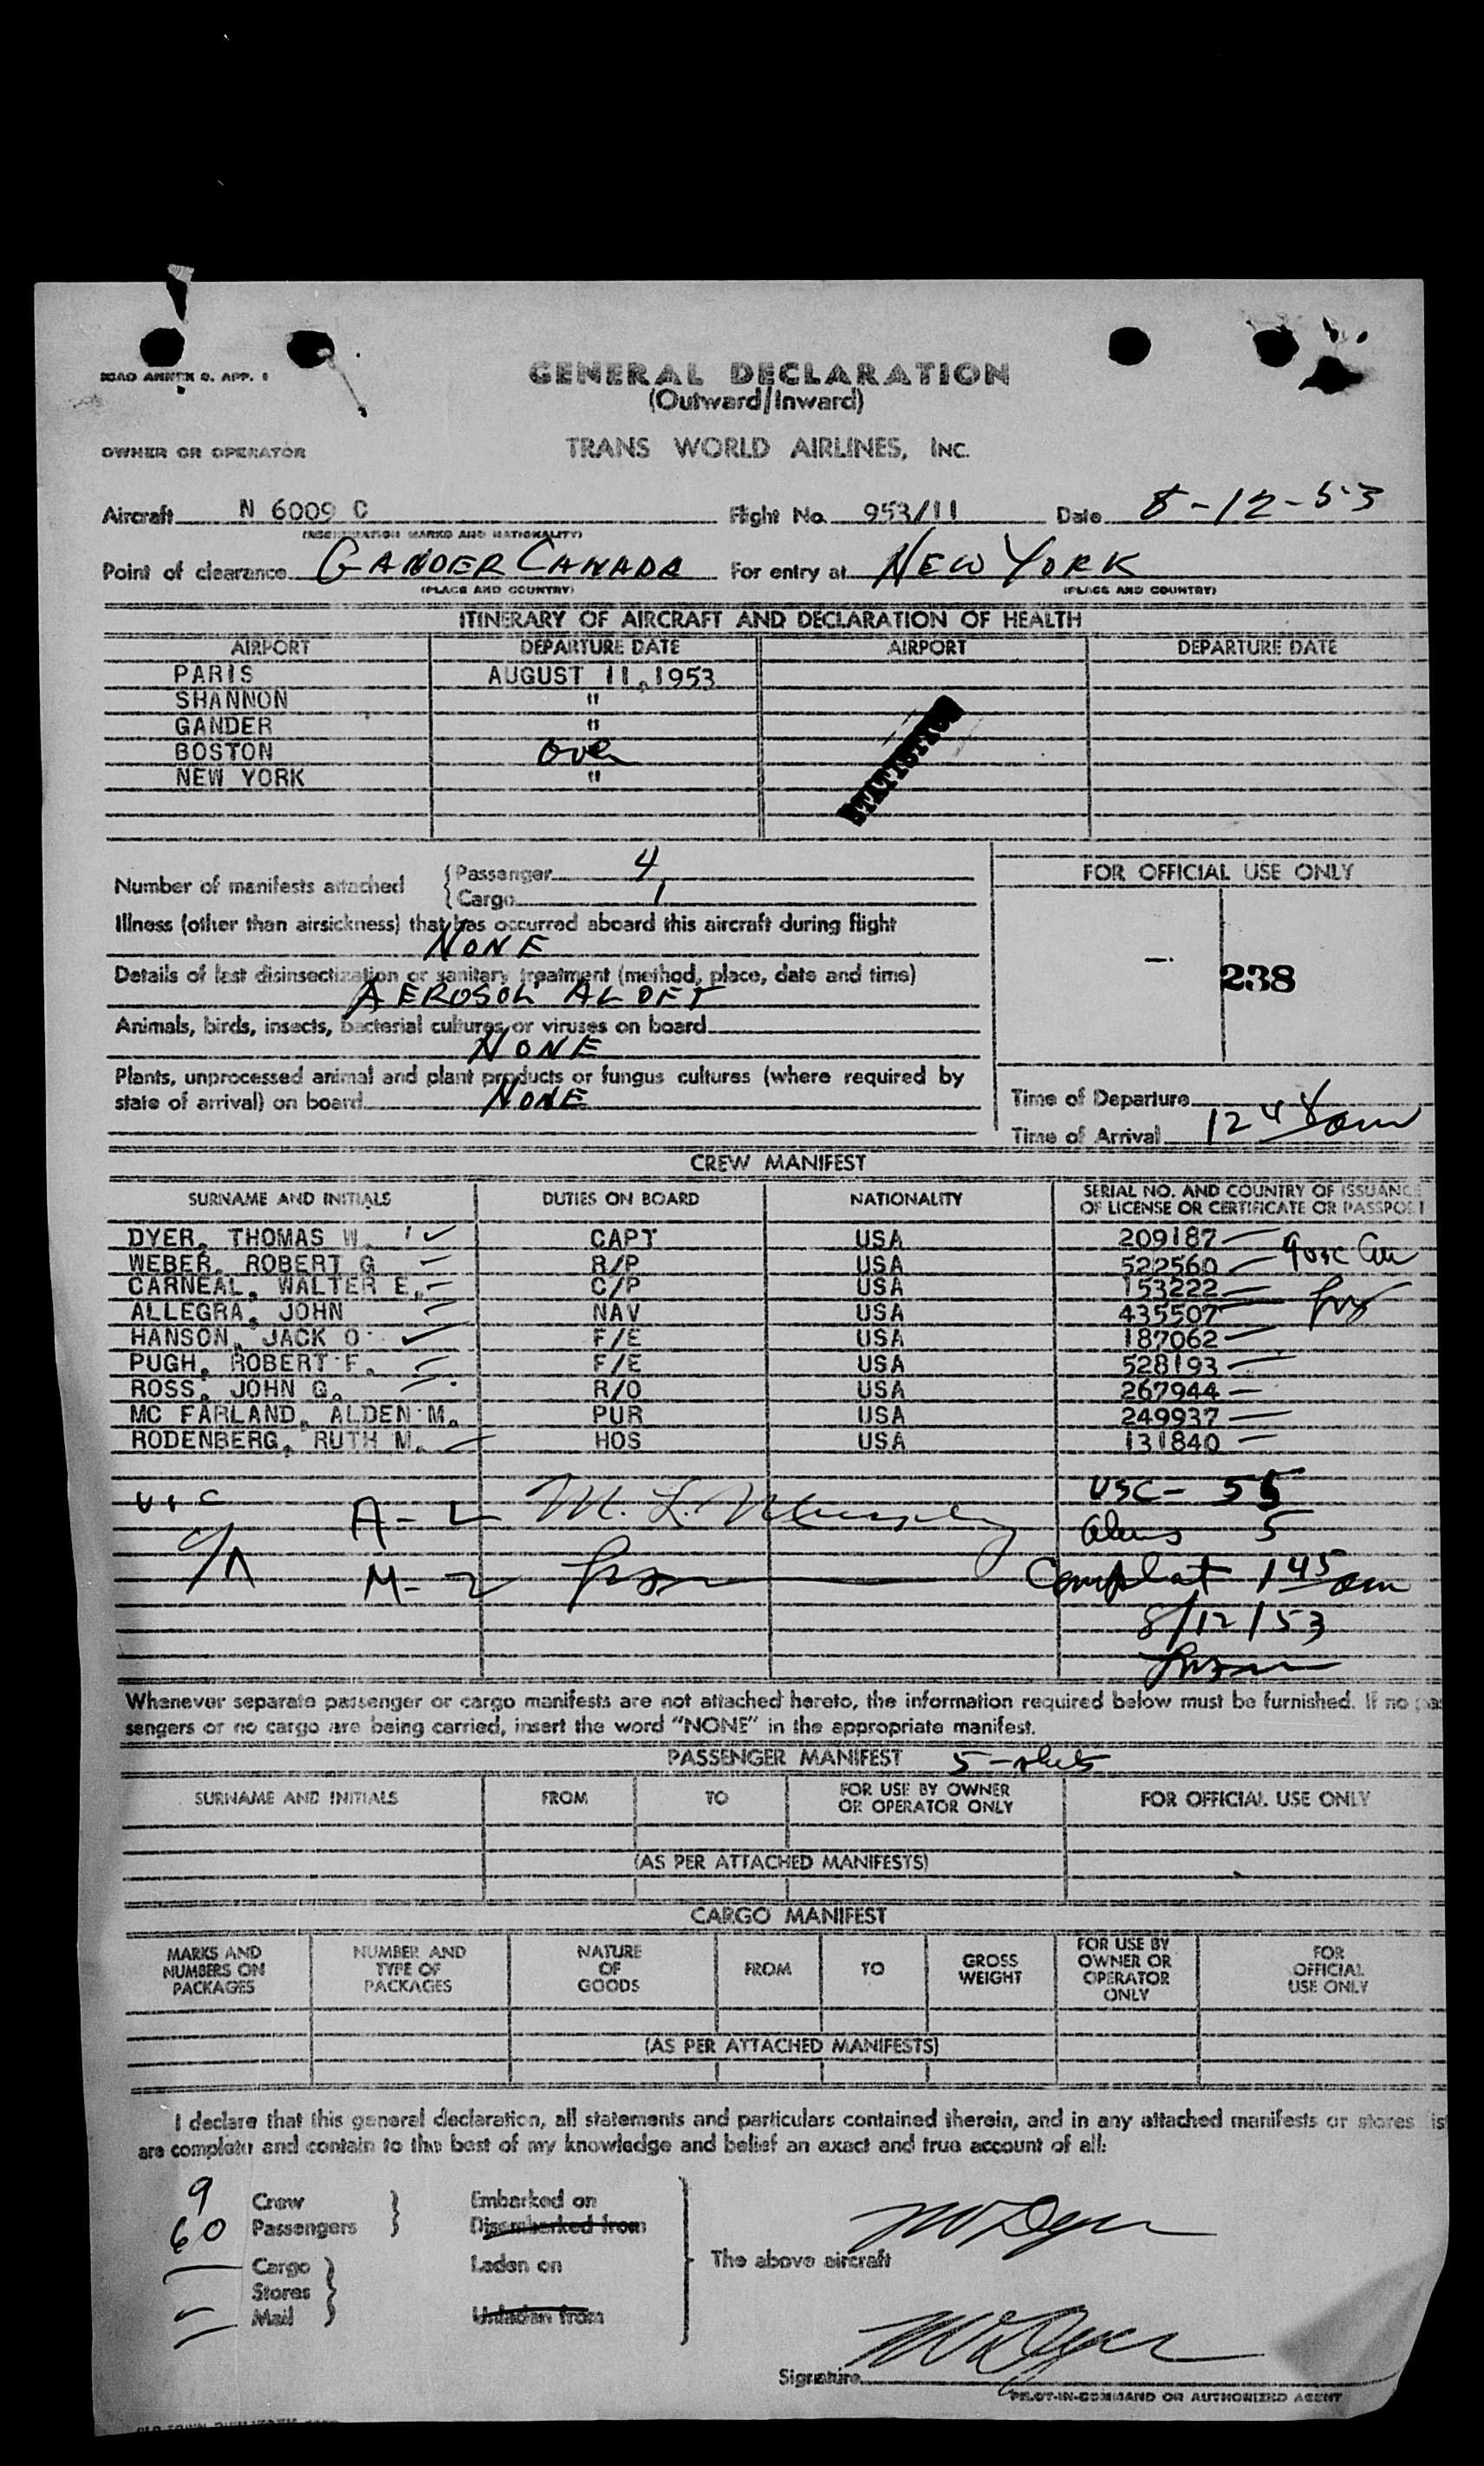 ICAO ANNEX 9, APP. 1
GENERAL DECLARATION
(Outward/Inward)
OWNER OR OPERATOR TRANS WORLD AIRLINES, INC.
Aircraft N 6009 C Flight No. 953/11 Date 8-12-53
(REGISTRATION MARKS AND NATIONALITY)
Point of clearance GANDER CANADA For entry at NEW YORK
(PLACE AND COUNTRY) (PLACE AND COUNTRY)
ITINERARY OF AIRCRAFT AND DECLARATION OF HEALTH
AIRPORT DEPARTURE DATE AIRPORT DEPARTURE DATE
PARIS AUGUST 11, 1953
SHANNON "
GANDER "
BOSTON over
NEW YORK "
STATISTICS
Number of manifests attached { Passenger 4
{ Cargo 1
FOR OFFICIAL USE ONLY
Illness (other than airsickness) that has occurred aboard this aircraft during flight
NONE
Details of last disinsectization or sanitary treatment (method, place, date and time)
AEROSOL ALOFT
238
Animals, birds, insects, bacterial cultures or viruses on board
NONE
Plants, unprocessed animal and plant products or fungus cultures (where required by
state of arrival) on board NONE
Time of Departure
Time of Arrival 12 48 am
CREW MANIFEST
SURNAME AND INITIALS DUTIES ON BOARD NATIONALITY SERIAL NO. AND COUNTRY OF ISSUANCE
OF LICENSE OR CERTIFICATE OR PASSPORT
DYER, THOMAS W. CAPT USA 209187
WEBER, ROBERT G R/P USA 522560 9 USC
CARNEAL, WALTER E. C/P USA 153222
ALLEGRA, JOHN NAV USA 435507
HANSON, JACK O F/E USA 187062
PUGH, ROBERT F. F/E USA 528193
ROSS, JOHN G. R/O USA 267944
MC FARLAND, ALDEN M. PUR USA 249937
RODENBERG, RUTH M. HOS USA 131840
USC - 55
A-2 M. L. Aliens 5
M-2 Complet 1 45 am
8/12/53
Whenever separate passenger or cargo manifests are not attached hereto, the information required below must be furnished. If no pas
sengers or no cargo are being carried, insert the word "NONE" in the appropriate manifest.
PASSENGER MANIFEST 5-shts
SURNAME AND INITIALS FROM TO FOR USE BY OWNER
OR OPERATOR ONLY FOR OFFICIAL USE ONLY
(AS PER ATTACHED MANIFESTS)
CARGO MANIFEST
MARKS AND
NUMBERS ON
PACKAGES
NUMBER AND
TYPE OF
PACKAGES
NATURE
OF
GOODS
FROM
TO
GROSS
WEIGHT
FOR USE BY
OWNER OR
OPERATOR
ONLY
FOR
OFFICIAL
USE ONLY
(AS PER ATTACHED MANIFESTS)
I declare that this general declaration, all statements and particulars contained therein, and in any attached manifests or stores lis
are complete and contain to the best of my knowledge and belief an exact and true account of all:
9 Crew } Embarked on
60 Passengers } Disembarked from
Cargo } Laden on The above aircraft
Stores }
Mail } Unladen from
TW Dyer
Signature TW Dyer
PILOT-IN-COMMAND OR AUTHORIZED AGENT